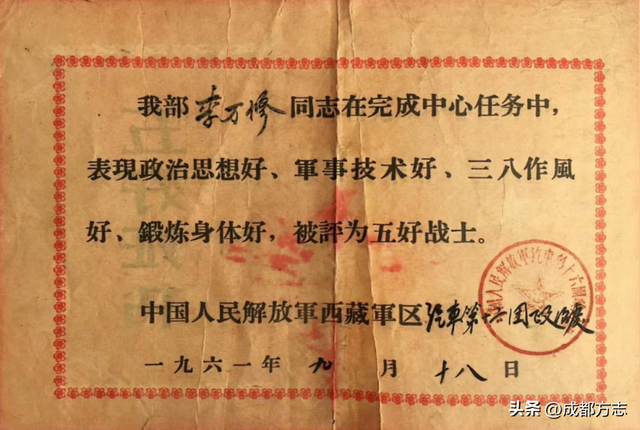 我部李万修同志在完成中心任务中,
表現政治思想好、軍事技术好、三八作風
好、鍛炼身体好,被評为五好战士。
中国人民解放軍西藏軍区汽車第十六团政治处
一九六一年九月十八日
头条 @成都方志